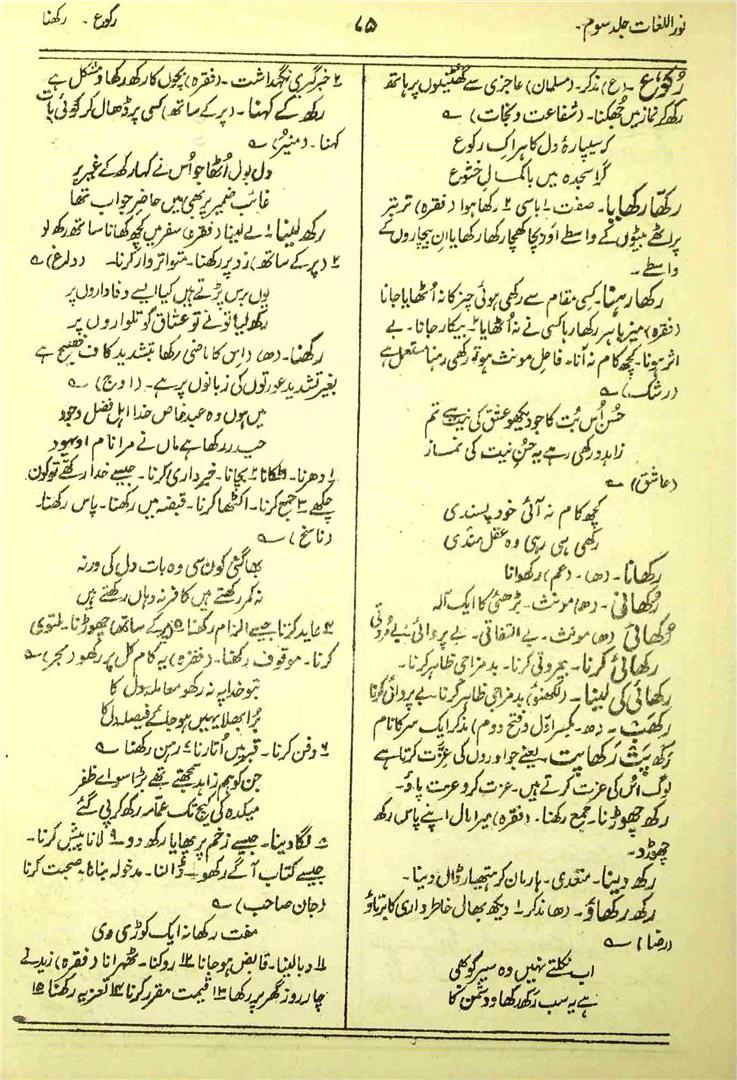 نور اللغات جلد سوم۔
۷۵
رکوع۔ رکھنا
رُکوع۔ (ع) مذکر۔ (مسلمان) عاجزی سے گھٹنیوں پر ہاتھ
رکھ کر نماز میں جُھکنا۔ (شفاعت و نجات) ؎
کر سیپارۂ دل کا ہر اک رکوع
گرا سجدہ میں باکمالِ خشوع
رکھّا رکھایا۔ صفت ۱ باسی ۲ رکھا ہوا (فقرہ) تربتر
پراٹھے بیٹوں کے واسطے اور بچا کھچا رکھا رکھایا اِن بیچاروں کے
واسطے۔
رکھا رہنا۔ کسی مقام سے رکھی ہوئی چیز کا نہ اُٹھایا جانا
(فقرہ) میز باہر رکھا رہا کسی نے نہ اُٹھایا ۲ بیکار جانا۔ بے
اثر ہونا۔ کچھ کام نہ آنا۔ فاعل مونث ہو تو رکھی رہنا مستعمل ہے
(رشک) ؎
حُسن اُس بُت کا جو دیکھو عشق کی نیت سے تم
زاہدو رکھی رہے یہ حُسنِ نیت کی نماز
(عاشق) ؎
کچھ کام نہ آئی خود پسندی
رکھی ہی رہی وہ عقل مندی
رکھانا۔ (ھ)۔ (عم) رکھوانا
رُکھانی۔ (ھ) مونث۔ بڑھئی کا ایک آلہ
رُکھائی (ھ) مونث۔ بے التفاتی۔ بے پروائی۔ بے مُروّتی
رکھائی کرنا۔ بیمروتی کرنا۔ بدمزاجی ظاہر کرنا۔
رکھائی کی لینا۔ (لکھنؤ) بدمزاجی ظاہر کرنا۔ بے پروائی کرنا
رکھب۔ (ھ۔ بکسر اوّل و فتح دوم) مذکر ایک سُر کا نام
رکھ پت رکھا پت۔ یعنے جو اوروں کی عزّت کرتا ہے
لوگ اُس کی عزت کرتے ہیں۔ عزت کرو عزت پاؤ۔
رکھ چھوڑنا۔ جمع رکھنا۔ (فقرہ) میرا مال اپنے پاس رکھ
چھوڑو۔
رکھ دینا۔ متعدی۔ ہار مان کر ہتھیار ڈال دینا۔
رکھ رکھاؤ۔ (ھ) مذکر ۱ دیکھ بھال خاطرداری کا برتاؤ
(رضا) ؎
اب نکلتے نہیں وہ سیر کو بھی
ہے یہ سب رکھ رکھاؤ دشمن کا
۲ خبرگیری نگہداشت۔ (فقرہ) بچوں کا رکھ رکھاؤ مشکل ہے
رکھ کے کہنا۔ (پر کے ساتھ) کسی پر ڈھال کر کوئی بات
کہنا۔ (منیر) ؎
دل بول اُٹھا جو اُس نے کہا رکھ کے غیر پر
غائب ضمیر پر بھی میں حاضر جواب تھا
رکھ لینا ۱ لے لینا (فقرہ) سفر میں کچھ کھانا ساتھ رکھ لو
۲ (پر کے ساتھ) زد پر رکھنا۔ متواتر وار کرنا۔ (داغ) ؎
یوں برس پڑتے ہیں کیا ایسے وفاداروں پر
رکھ لیا تو نے تو عشاق کو تلواروں پر
رکھنا۔ (ھ) اس کا ماضی رکھا بتشدید کاف فصیح ہے
بغیر تشدید عورتوں کی زبانوں پر ہے۔ (اوج) ؎
میں ہوں وہ عبدِ خاص خدا اہل فضل وجود
حیدر رکھا ہے ماں نے مرا نام او یہود
۱ دھرنا۔ ٹکانا ۲ بچانا۔ خبرداری کرنا۔ جیسے خدا رکھے تو کون
چکھے ۳ جمع کرنا۔ اکٹھا کرنا۔ قبضہ میں رکھنا۔ پاس رکھنا۔
(ناسخ) ؎
بھاگئی کون سی وہ بات دل کی ورنہ
نہ کمر رکھتے ہیں کافر نہ دہاں رکھتے ہیں
۴ عاید کرنا جیسے الزام رکھنا ۵ (پر کے ساتھ) چھوڑنا۔ ملتوی
کرنا۔ موقوف رکھنا۔ (فقرہ) یہ کام کل پر رکھو (مجر) ؎
بتو خدا پہ نہ رکھو معاملہ دل کا
بُرا بھلا یہیں ہو جائے فیصلہ دل کا
۶ دفن کرنا۔ قبر میں اُتارنا ۷ رہن رکھنا ؎
جن کو ہم زاہد سمجھتے تھے بڑا سو اے ظفر
میکدہ کی کیچ تک عمامہ رکھ کر پی گئے
۸ لگا دینا۔ جیسے زخم پر پھایا رکھ دو۔ ۹ لانا پیش کرنا۔
جیسے کتاب آگے رکھو۔ ڈالنا۔ مدخولہ بنانا۔ صحبت کرنا
(جان صاحب) ؎
مفت رکھا نہ ایک کوڑی دی
۱۱ دبا لینا۔ قابض ہو جانا ۱۲ روکنا۔ ٹھہرانا (فقرہ) زید نے
چار روز گھر پر رکھا ۱۳ قیمت مقرر کرنا ۱۴ تعزیہ رکھنا ۱۵